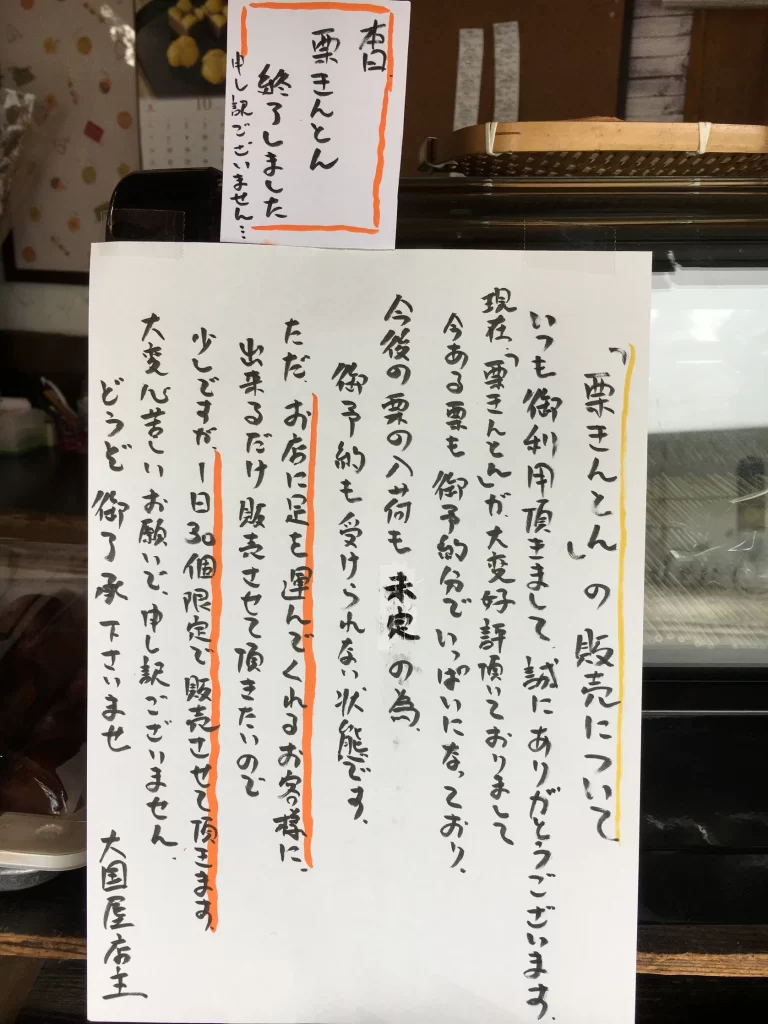 本日
栗きんとん
終了しました
申し訳ございません…
「栗きんとん」の販売について
いつも御利用頂きまして、誠にありがとうございます。
現在、「栗きんとん」が、大変好評頂いておりまして
今ある栗も御予約分でいっぱいになっており、
今後の栗の入荷も未定の為、
御予約も受けられない状態です。
ただ、お店に足を運んでくれるお客様に、
出来るだけ販売させて頂きたいので
少しですが、1日30個限定で販売させて頂きます。
大変心苦しいお願いで、申し訳ございません。
どうぞ御了承下さいませ
大国屋店主